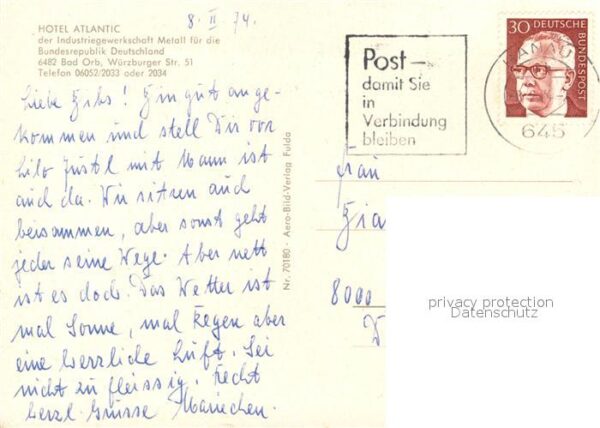 8. II 74.
HOTEL ATLANTIC
der Industriegewerkschaft Metall für die
Bundesrepublik Deutschland
6482 Bad Orb, Würzburger Str. 51
Telefon 06052/2033 oder 2034
Liebe ! Bin gut ange-
kommen und stell Dir vor
Lilo mit Mann ist
auch da. Wir sitzen auch
beisammen, aber sonst geht
jeder seine Wege. Aber nett
ist es doch. Das Wetter ist
mal Sonne, mal Regen aber
eine herrliche Luft. Sei
nicht zu fleissig. Recht
herzl. Grüsse Mariechen.
Nr. 70180 · Aero-Bild-Verlag Fulda
Post –
damit Sie
in
Verbindung
bleiben
30 DEUTSCHE
BUNDESPOST
HANAU
645
Frau
8000
privacy protection
Datenschutz